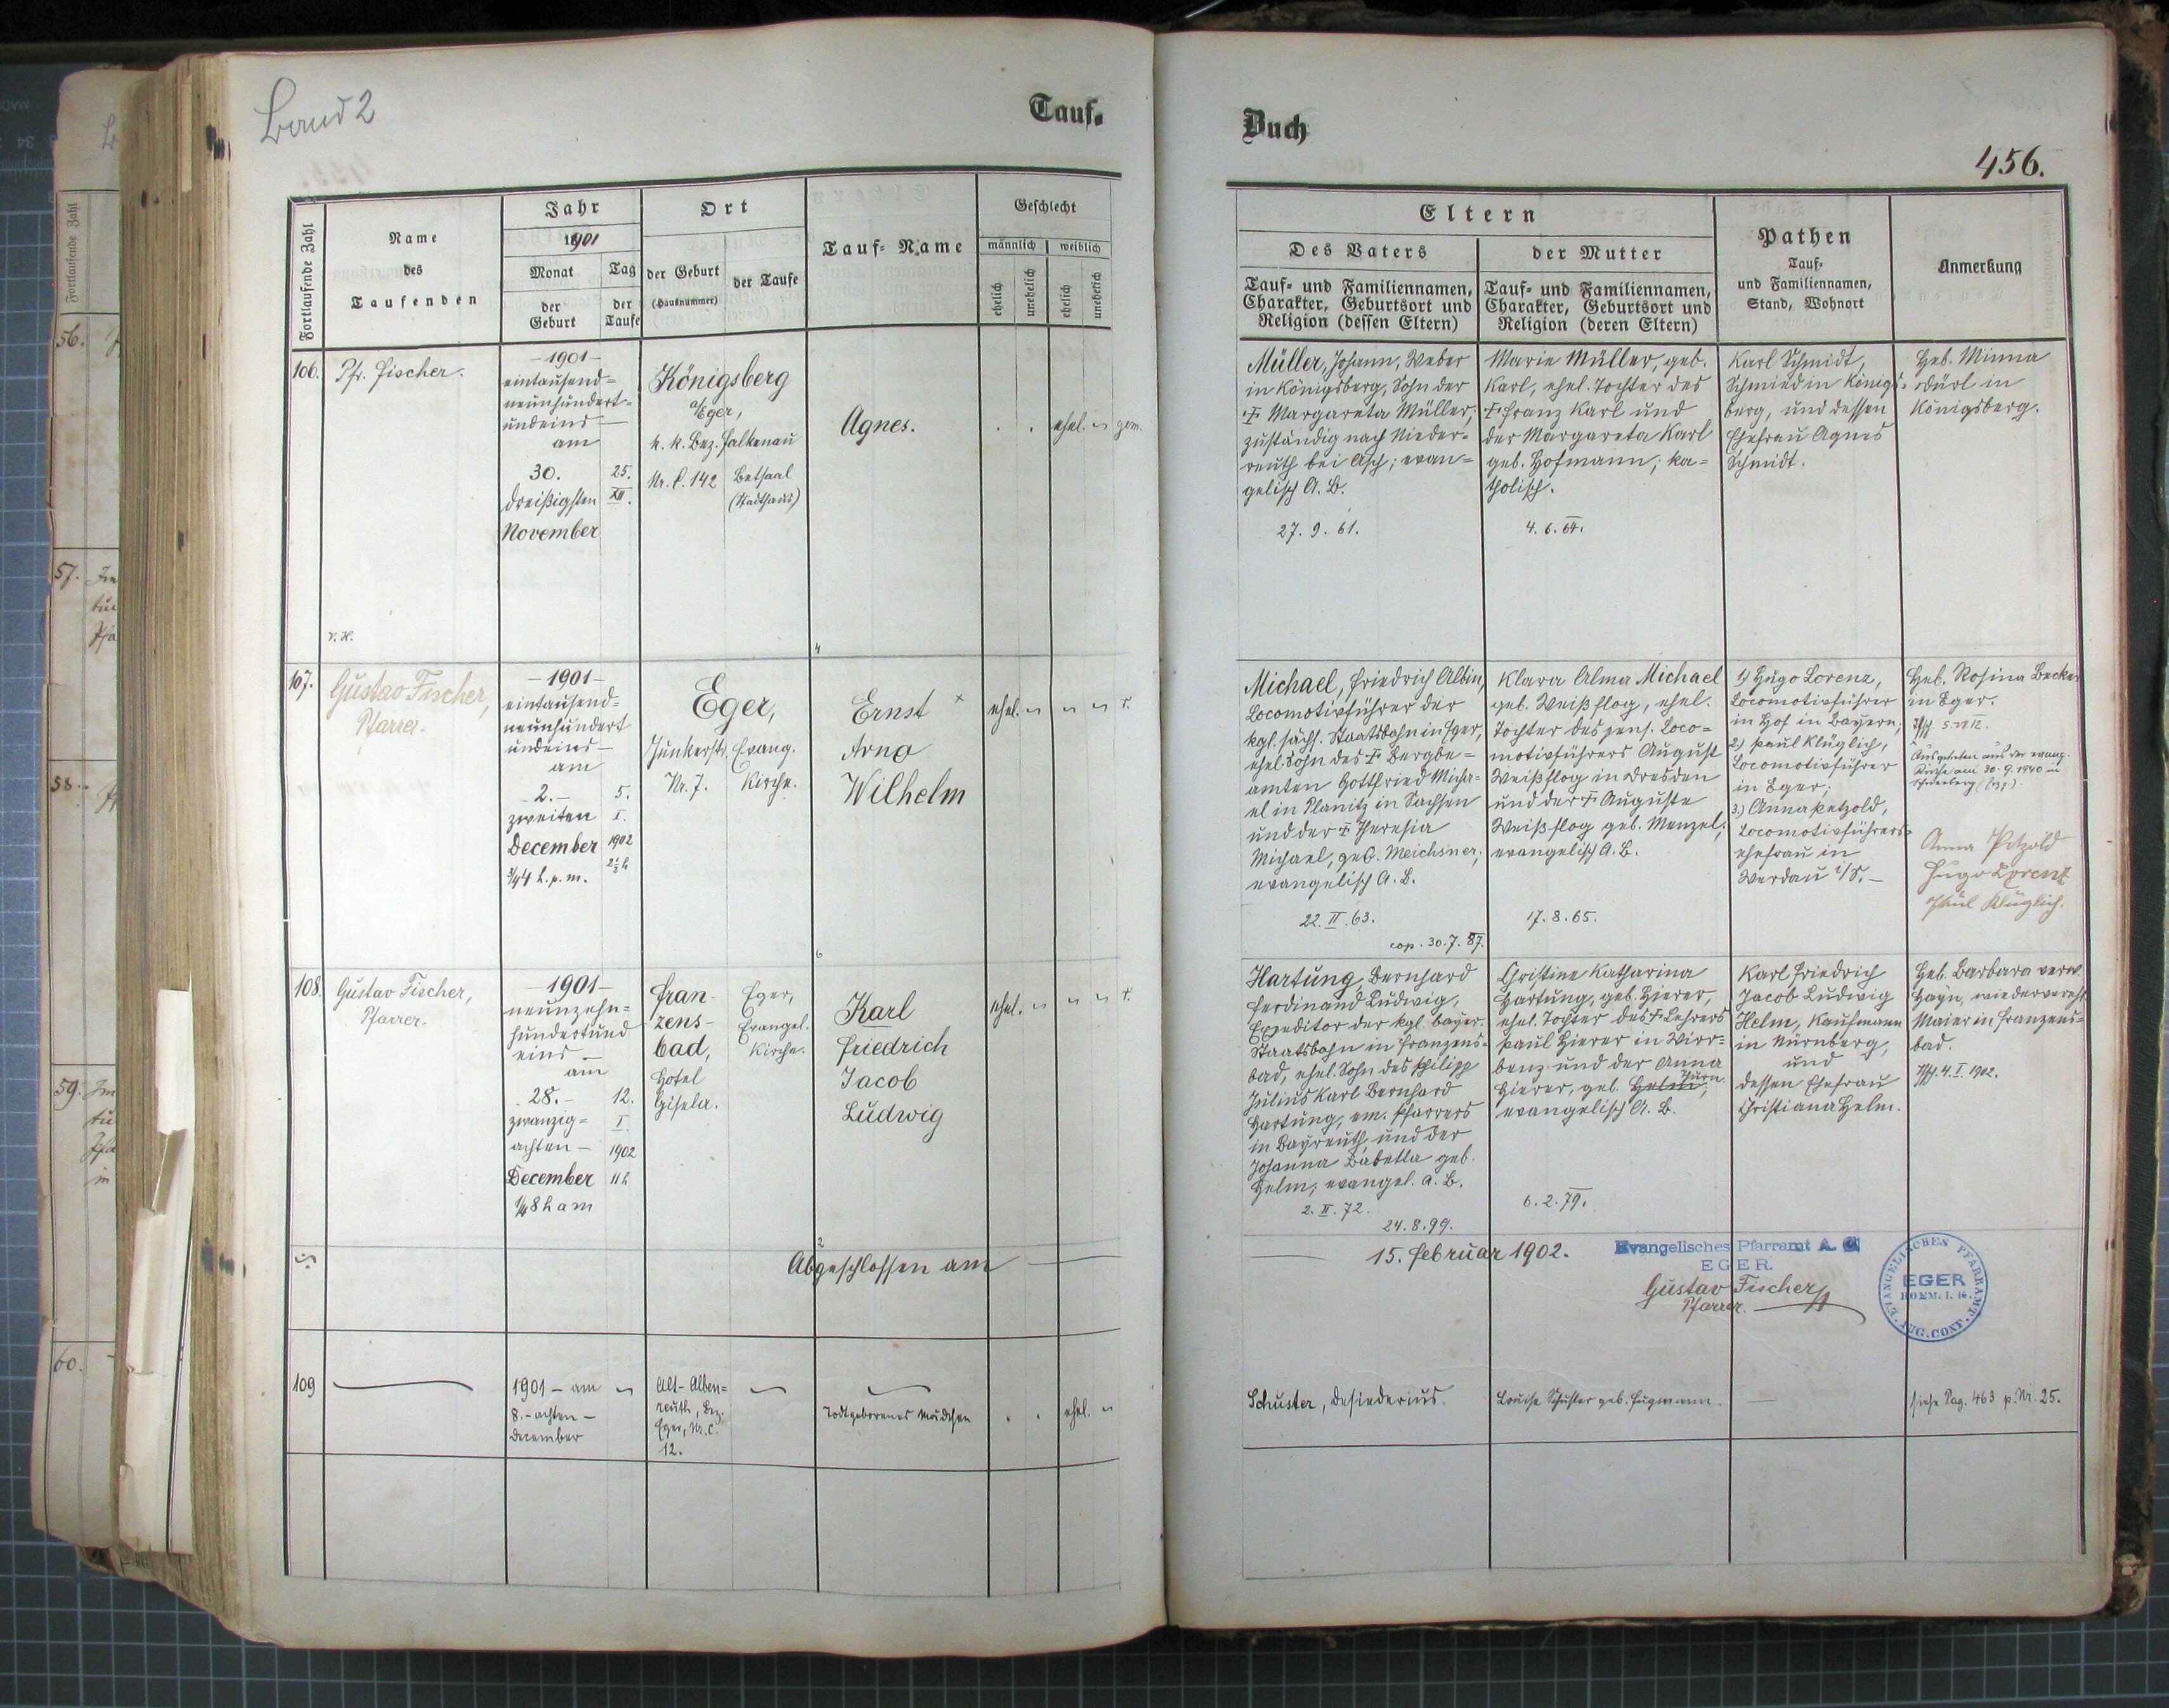 Band 2
Tauf-
Buch
456.
Fortlaufende Zahl
Name
des
Taufenden
Jahr
1901
Monat
der
Geburt
Tag
der
Taufe
Ort
der Geburt
(Hausnummer)
der Taufe
Tauf-Name
Geschlecht
männlich
weiblich
ehelich
unehelich
ehelich
unehelich
Eltern
Des Vaters
Tauf- und Familiennamen,
Charakter, Geburtsort und
Religion (dessen Eltern)
der Mutter
Tauf- und Familiennamen,
Charakter, Geburtsort und
Religion (deren Eltern)
Pathen
Tauf-
und Familiennamen,
Stand, Wohnort
Anmerkung
106.
Pfr. Fischer.
- 1901 -
eintausend=
neunhundert=
undeins —
am
30.
dreißigsten
November
25.
XII.
Königsberg
a/Eger,
k. k. Bez. Falkenau
Nr. C. 142
Betsaal
(Stadthaus)
Agnes.
ehel.
gem.
Müller, Johann, Weber
in Königsberg, Sohn der
† Margareta Müller,
zuständig nach Nieder=
reuth bei Asch; evan=
gelisch A. B.
27. 9. 61.
Marie Müller, geb.
Karl, ehel. Tochter des
† Franz Karl und
der Margareta Karl
geb. Hofmann; ka=
tholisch.
4. 6. 64.
Karl Schmidt,
Schmied in Königs=
berg, und dessen
Ehefrau Agnes
Schmidt.
Heb. Minna
Dürl in
Königsberg.
107.
Gustav Fischer,
Pfarrer.
- 1901 -
eintausend=
neunhundert
undeins —
am
2. —
zweiten
December
3/4 4 h. p. m.
5.
I.
1902
Eger,
Junkerstr.
Nr. 7.
Evang.
Kirche.
Ernst ×
Arno
Wilhelm
ehel.
Michael, Friedrich Albin,
Locomotivführer der
kgl. sächs. Staatsbahn in Eger,
ehel. Sohn des † Bergbe=
amten Gottfried Micha=
el in Planitz in Sachsen
und der † Theresia
Michael, geb. Meichsner;
evangelisch A. B.
22. II. 63.
cop. 30. 7. 87.
Klara Alma Michael
geb. Weißflog, ehel.
Tochter des pens. Loco=
motivführers August
Weißflog in Dresden
und der † Auguste
Weißflog geb. Menzel;
evangelisch A. B.
17. 8. 65.
1) Hugo Lorenz,
Locomotivführer
in Hof in Bayern;
2) Paul Klüglich,
Locomotivführer
in Eger;
3.) Anna Petzold,
Locomotivführers=
ehefrau in
Werdau i/S. —
Heb. Rosina Becker
in Eger.
Ausgetreten aus der evang.
Kirche am 30. 9. 1940 in
Anna Petzold
Hugo Lorenz
Paul Klüglich.
108.
Gustav Fischer,
Pfarrer.
- 1901 -
neunzehn=
hundertund
eins —
am
28. —
zwanzig=
achten —
December
1/4 8 h a m
12.
I.
1902
11 h
Fran-
zens-
bad,
Hotel
Gisela.
Eger,
Evangel.
Kirche.
Karl
Friedrich
Jacob
Ludwig
ehel.
Hartung, Bernhard
Ferdinand Ludwig,
Expeditor der kgl. bayer.
Staatsbahn in Franzens=
bad, ehel. Sohn des Philipp
Julius Karl Bernhard
Hartung, em. Pfarrers
in Bayreuth und der
Johanna Babetta geb.
Helm, evangel. A. B.
2. II. 72.
24. 8. 99.
Christine Katharina
Hartung, geb. Hierer,
ehel. Tochter des † Lehrers
Paul Hierer in Wirr=
benz und der Anna
Hierer, geb. Helm,
evangelisch A. B.
6. 2. 79.
Karl Friedrich
Jacob Ludwig
Helm, Kaufmann
in Nürnberg,
und
dessen Ehefrau
Christiana Helm.
Heb. Barbara verw.
Hayn, wiedervereh.
Maier in Franzens=
bad.
4. I. 1902.
Abgeschlossen am
15. Februar 1902.
Evangelisches Pfarramt A. C.
EGER.
Gustav Fischer
Pfarrer.
EVANGELISCHES PFARRAMT
EGER
AUG. CONF.
109
1901 - am
8. - achten -
December
Alt-Alben=
reuth, Bez.
Eger, Nr. C.
12.
Todtgeborenes Mädchen
ehel.
Schuster, Desiderius.
Louise Schuster geb. Fugmann.
siehe Pag. 463 p. Nr. 25.
56.
57.
58.
59.
60.